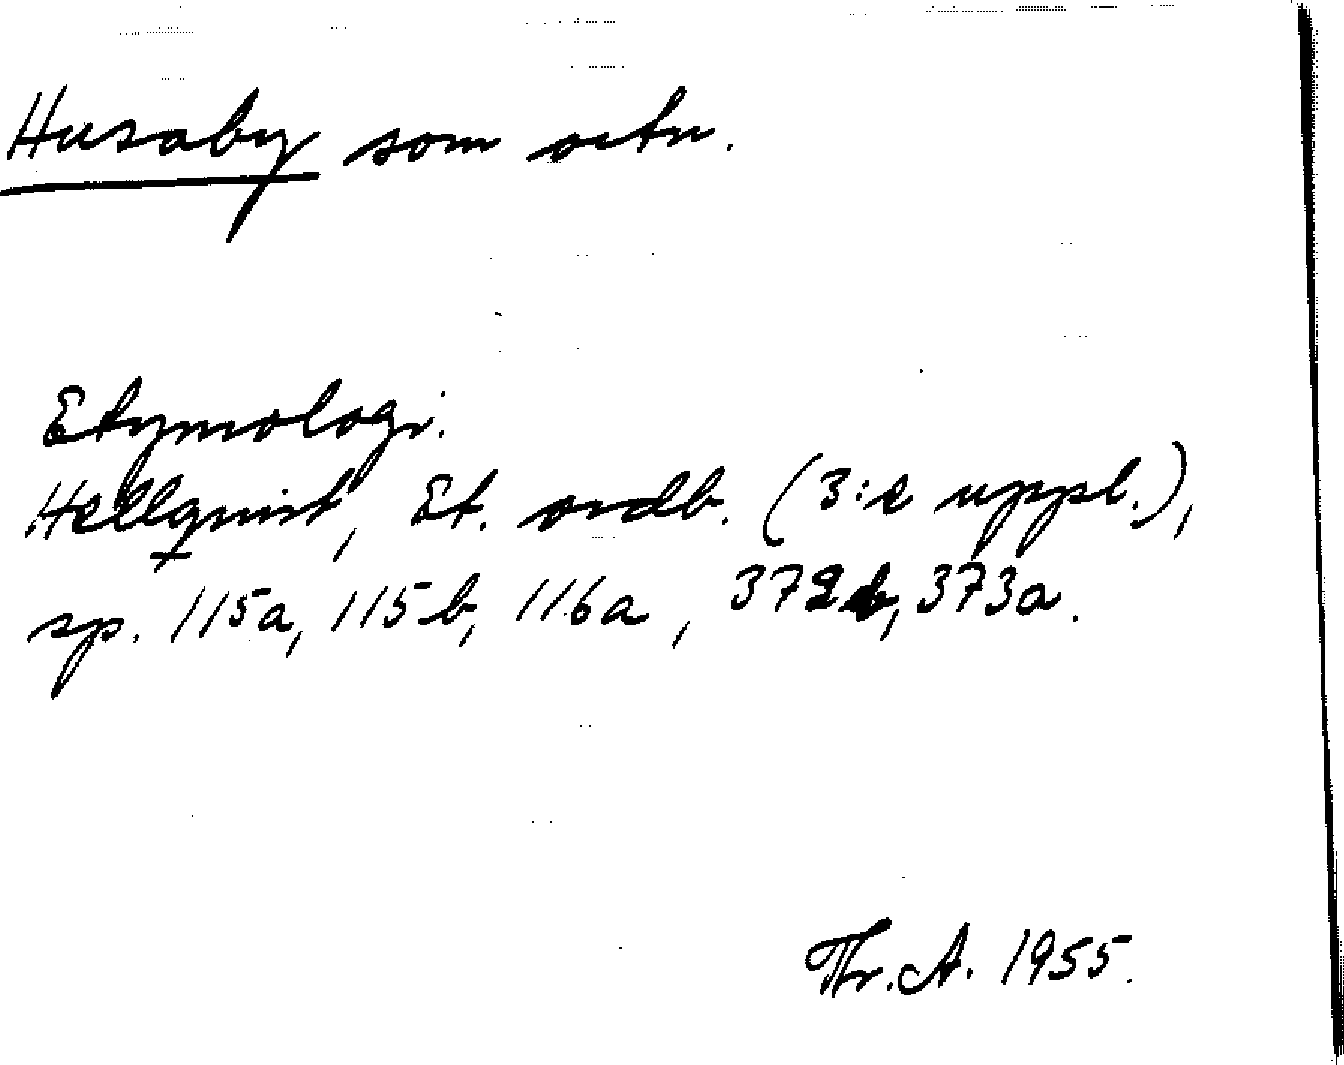 Husaby som ortn.
Etymologi.
Hellquist, Et. ordb. (3:e uppl.),
sp. 115a, 115b, 116a, 372b, 373a.
Thr. A. 1955.